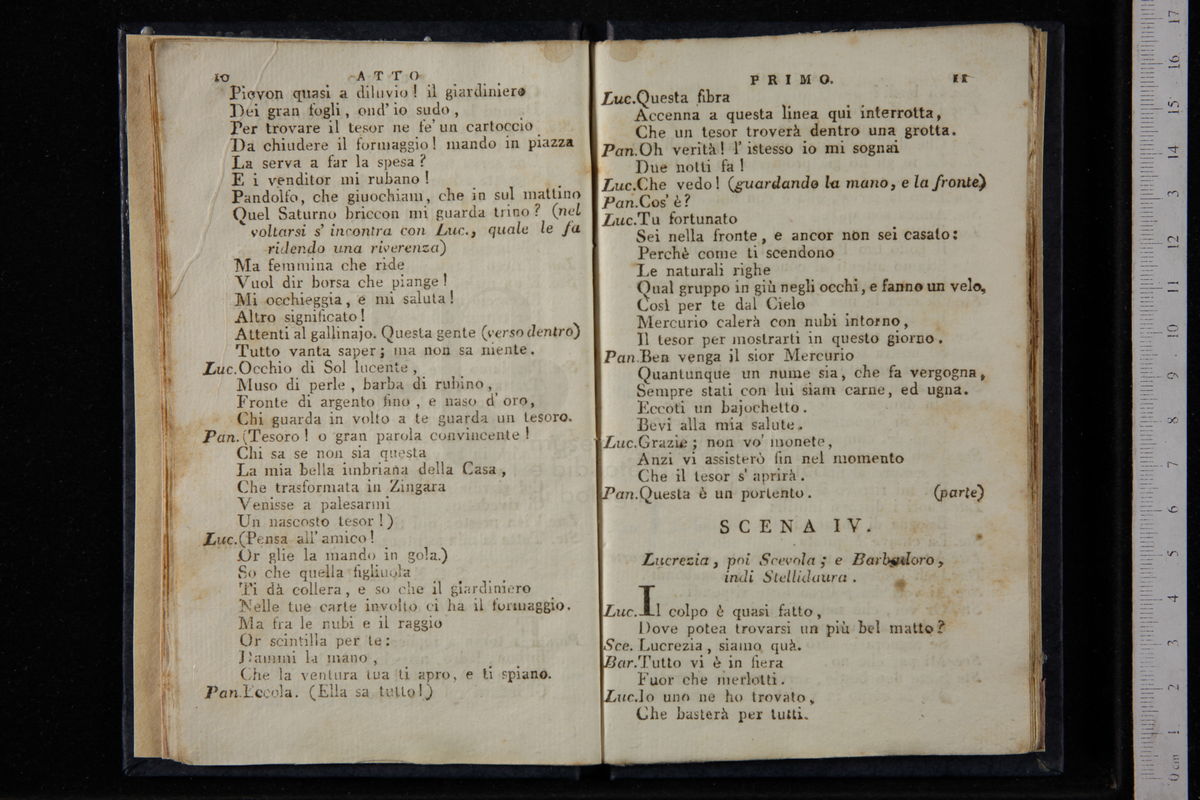 10 ATTO
Piovon quasi a diluvio! il giardiniero
Dei gran fogli, ond' io sudo,
Per trovare il tesor ne fe' un cartoccio
Da chiudere il formaggio! mando in piazza
La serva a far la spesa?
E i venditor mi rubano!
Pandolfo, che giuochiam, che in sul mattino
Quel Saturno briccon mi guarda trino? (nel
voltarsi s' incontra con Luc., quale le fa
ridendo una riverenza)
Ma femmina che ride
Vuol dir borsa che piange!
Mi occhieggia, e mi saluta!
Altro significato!
Attenti al gallinajo. Questa gente (verso dentro)
Tutto vanta saper; ma non sa niente.
Luc. Occhio di Sol lucente,
Muso di perle, barba di rubino,
Fronte di argento fino, e naso d' oro,
Chi guarda in volto a te guarda un tesoro.
Pan. (Tesoro! o gran parola convincente!
Chi sa se non sia questa
La mia bella imbriana della Casa,
Che trasformata in Zingara
Venisse a palesarmi
Un nascosto tesor!)
Luc. (Pensa all' amico!
Or glie la mando in gola.)
So che quella figliuola
Ti dà collera, e so che il giardiniero
Nelle tue carte involto ci ha il formaggio.
Ma fra le nubi e il raggio
Or scintilla per te:
Dammi la mano,
Che la ventura tua ti apro, e ti spiano.
Pan. Eccola. (Ella sa tutto!)
PRIMO. 11
Luc. Questa fibra
Accenna a questa linea qui interrotta,
Che un tesor troverà dentro una grotta.
Pan. Oh verità! l' istesso io mi sognai
Due notti fa!
Luc. Che vedo! (guardando la mano, e la fronte)
Pan. Cos' è?
Luc. Tu fortunato
Sei nella fronte, e ancor non sei casato:
Perchè come ti scendono
Le naturali righe
Qual gruppo in giù negli occhi, e fanno un velo,
Così per te dal Cielo
Mercurio calerà con nubi intorno,
Il tesor per mostrarti in questo giorno.
Pan. Ben venga il sior Mercurio
Quantunque un nume sia, che fa vergogna,
Sempre stati con lui siam carne, ed ugna.
Eccoti un bajochetto.
Bevi alla mia salute.
Luc. Grazie; non vo' monete,
Anzi vi assisterò fin nel momento
Che il tesor s' aprirà.
Pan. Questa è un portento. (parte)
SCENA IV.
Lucrezia, poi Scevola; e Barbadoro,
indi Stellidaura.
Luc. Il colpo è quasi fatto,
Dove potea trovarsi un più bel matto?
Sce. Lucrezia, siamo quà.
Bar. Tutto vi è in fiera
Fuor che merlotti.
Luc. Io uno ne ho trovato,
Che basterà per tutti.
0 cm 1 2 3 4 5 6 7 8 9 10 11 12 13 14 15 16 17